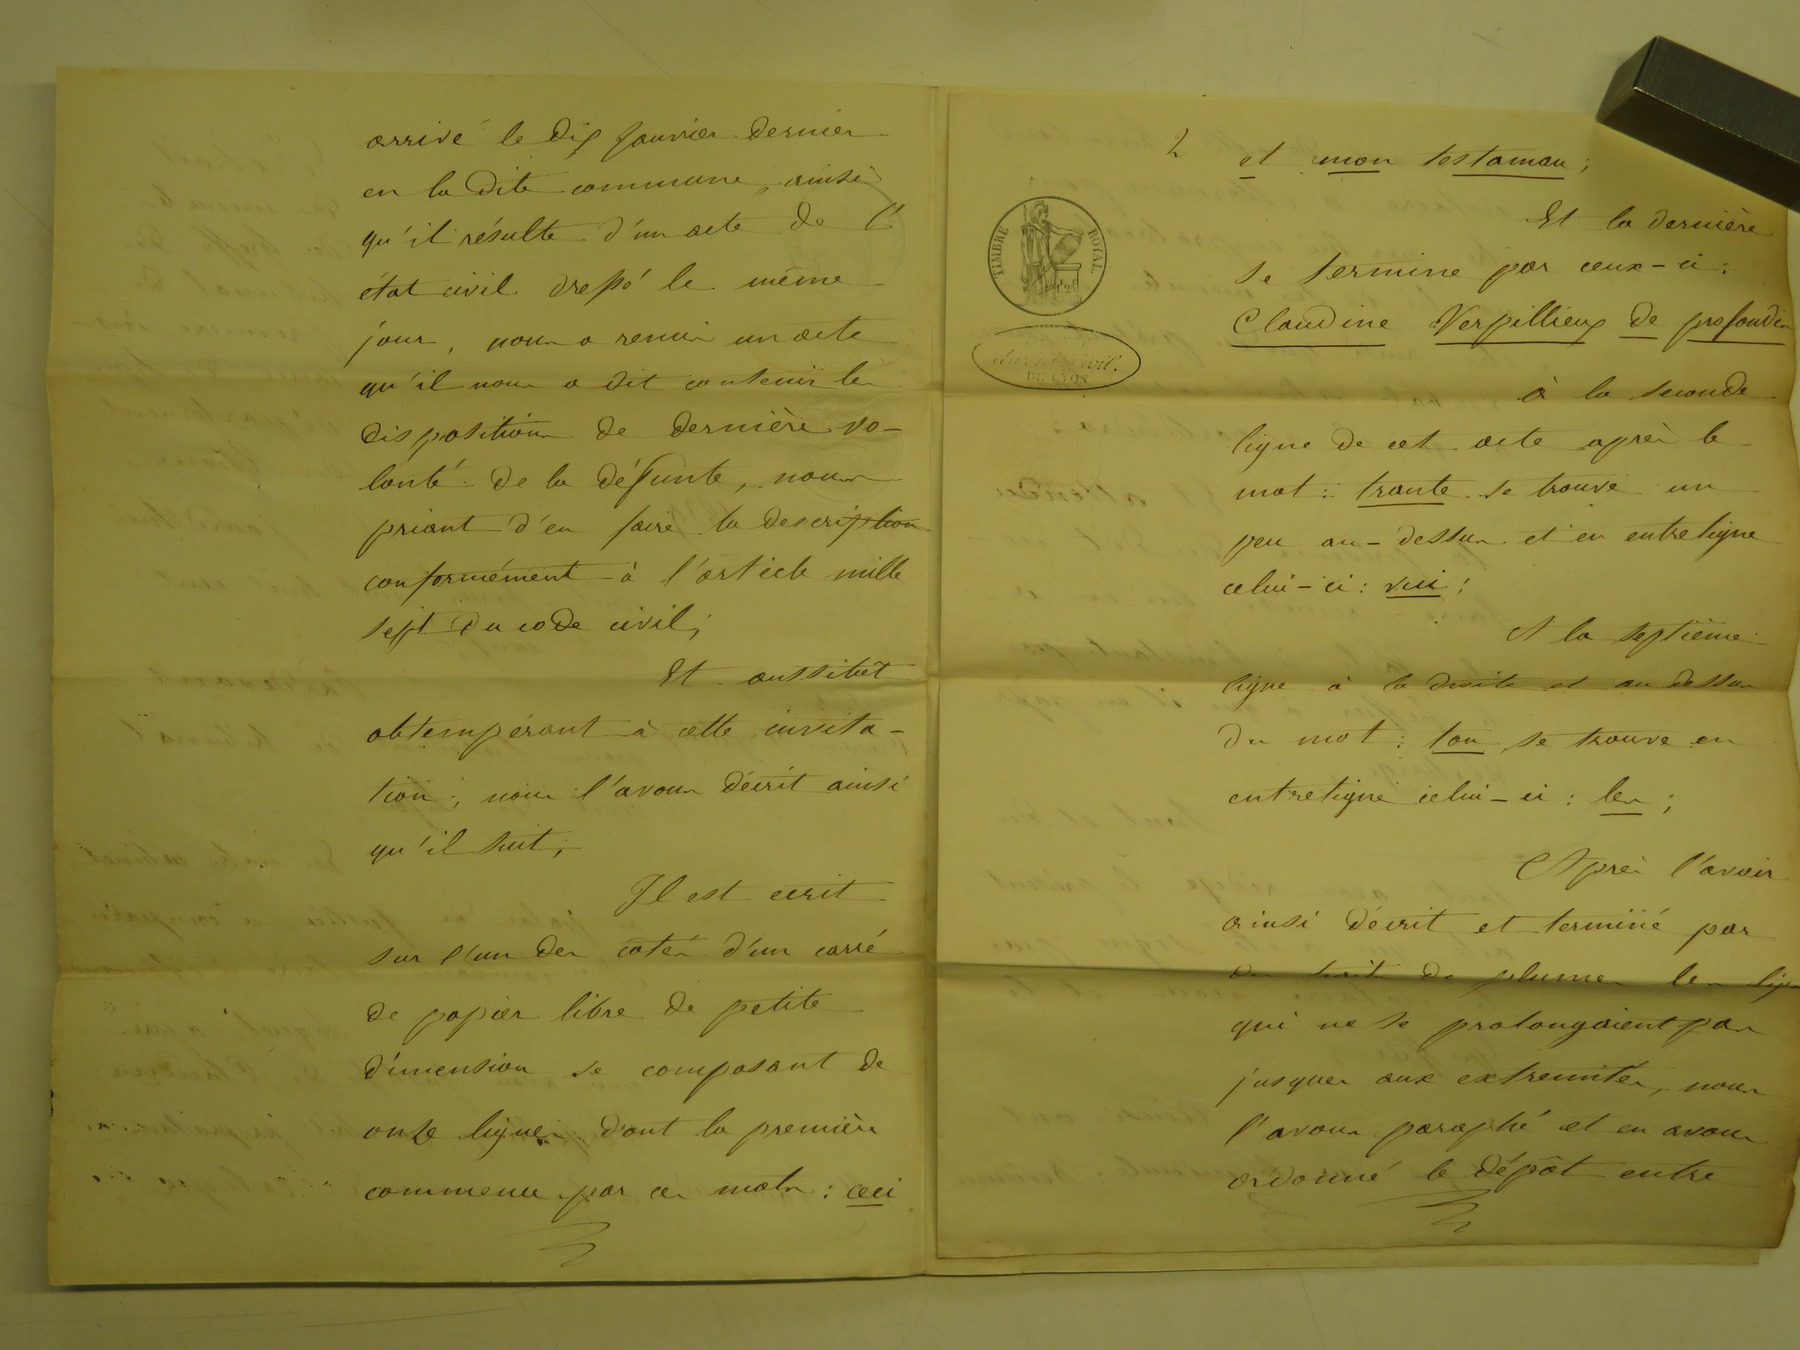 arrivé le dix janvier dernier
en la dite commune, ainsi
qu'il résulte d'un acte de l'
état civil dressé le même
jour, nous a remis un acte
qu'il nous a dit contenir les
dispositions de dernière vo-
lonté de la défunte, nous
priant d'en faire la description
conformément à l'article mille
sept du code civil;
Et aussitôt
obtempérant à cette invita-
tion, nous l'avons décrit ainsi
qu'il suit;
Il est écrit
sur l'un des cotés d'un carré
de papier libre de petite
dimension se composant de
onze lignes dont la première
commence par ces mots : ceci
2
et mon testaman;
Et la dernière
se termine par ceux-ci:
Claudine Verpillieux de profondin
à la seconde
ligne de cet acte après le
mot: trante se trouve un
peu au-dessus et en entreligne
celui-ci: vui;
A la septième
ligne à la droite et au dessus
du mot: tou se trouve en
entreligne celui-ci: les;
Après l'avoir
ainsi décrit et terminé par
des traits de plume les
qui ne se prolongaient pas
jusques aux extremités, nous
l'avons paraphé et en avons
ordonné le dépôt entre
TIMBRE ROYAL
DE LYON